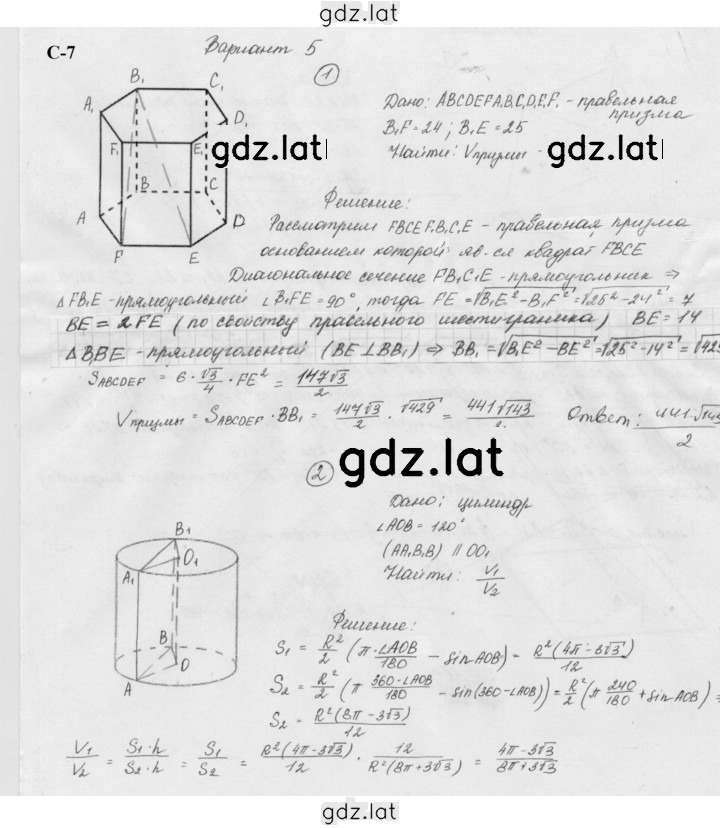 gdz.lat
С-7
Вариант 5
1
B₁
C₁
A₁
D₁
F₁
E₁
B
C
A
D
F
E
Дано: ABCDEFA₁B₁C₁D₁E₁F₁ - правельная
призма
B₁F = 24 ; B₁E = 25
Найти: Vпризмы -
gdz.lat
Решение:
Рассмотрим FBCEF₁B₁C₁E₁ - правельная призма
основанием которой яв-ся квадрат FBCE
Диагональное сечение FB₁C₁E - прямоугольник ⇒
△FB₁E - прямоугольный ∠B₁FE = 90°, тогда FE = √B₁E² - B₁F² = √25² - 24² = 7
BE = 2FE (по свойству правельного шестиграника) BE = 14
△B₁BE - прямоугольный (BE ⊥ BB₁) ⇒ BB₁ = √B₁E² - BE² = √25² - 14² = √429
SABCDEF = 6 · √3/4 · FE² = 147√3/2
Vпризмы = SABCDEF · BB₁ = 147√3/2 · √429 = 441√143/2 Ответ: 441·√143/2
2
gdz.lat
Дано: цилиндр
∠AOB = 120°
(AA₁B₁B) || OO₁
Найти: V₁/V₂
B₁
O₁
A₁
B
O
A
Решение:
S₁ = R²/2 (π · ∠AOB/180 - sin AOB) = R²(4π - 3√3)/12
S₂ = R²/2 (π 360 - ∠AOB/180 - sin(360 - ∠AOB)) = R²/2 (π 240/180 + sin AOB) =
S₂ = R²(8π - 3√3)/12
V₁/V₂ = S₁·h/S₂·h = S₁/S₂ = R²(4π - 3√3)/12 · 12/R²(8π + 3√3) = 4π - 3√3/8π + 3√3
gdz.lat